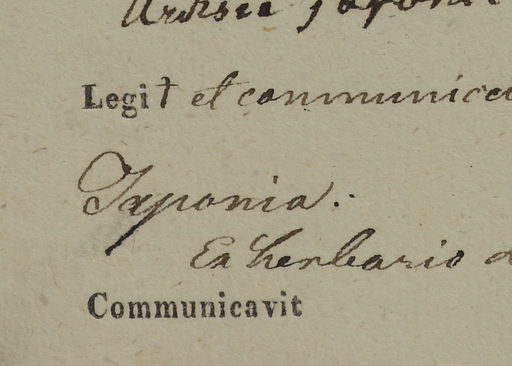 Legit et communica
Japonia.
Ex herbario
Communicavit